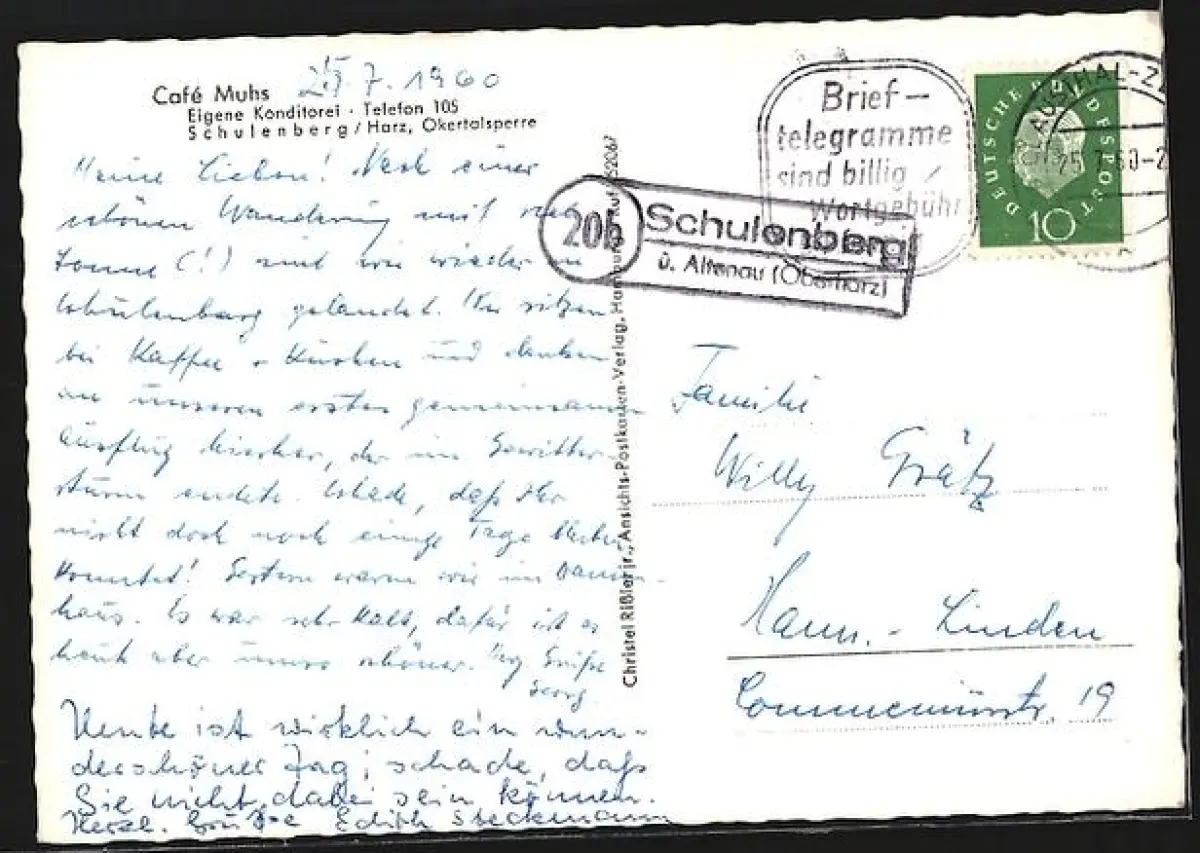 25.7.1960
Café Muhs
Eigene Konditorei · Telefon 105
Schulenberg/Harz, Okertalsperre
Meine Lieben! Nach einer
schönen Wanderung mit viel
Sonne (!) sind wir wieder in
Schulenberg gelandet. Wir sitzen
bei Kaffee + Kuchen und denken
an unseren ersten gemeinsamen
Ausflug hierher, der im Gewitter-
sturm endete. Schade, daß Ihr
nicht doch noch einige Tage bleiben
konntet! Gestern waren wir im
haus. Es war sehr kalt, dafür ist es
heute aber umso schöner. Grüße
Georg
Heute ist wirklich ein wun-
derschöner Tag, schade, daß
Sie nicht dabei sein können.
Herzl. Grüße Edith Steckmann
Christel Rißler jr., Ansichts-Postkarten-Verlag, Hamburg Ruf 52067
Brief-
telegramme
sind billig
Wortgebühr
20b
Schulenberg
ü. Altenau (Oberharz)
CLAUSTHAL-Z
25.7.60-2
DEUTSCHE BUNDESPOST
10
Familie
Willy Grätz
Hann.-Linden
19